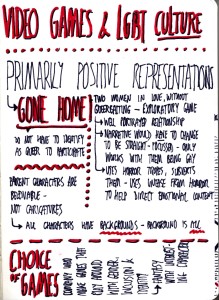 VIDEO GAMES & LGBT CULTURE
PRIMARILY POSITIVE REPRESENTATIONS
GONE HOME
DO NOT HAVE TO IDENTIFY
AS QUEER TO PARTICIPATE
PARENT CHARACTERS ARE
BELIEVABLE -
NOT CARICATURES
TWO WOMEN IN LOVE, WITHOUT
QUEERBAITING - EXPLORATORY GAME
WELL PORTRAYED RELATIONSHIP
NARRATIVE WOULD HAVE TO CHANGE
TO BE STRAIGHT-FOCUSED - ONLY
WORKS WITH THEM BEING GAY
USES HORROR TROPES, SUBVERTS
THEM - USES IMAGE FROM HORROR
TO HELP DIRECT EMOTIONAL CONTENT
ALL CHARACTERS HAVE BACKGROUNDS - BACKGROUND IS
CHOICE
OF GAMES
COMPANY WHO
MAKE GAMES THAT
PLAY AROUND
WITH GENDER,
INCLUSION &
IDENTITY
FANTASY